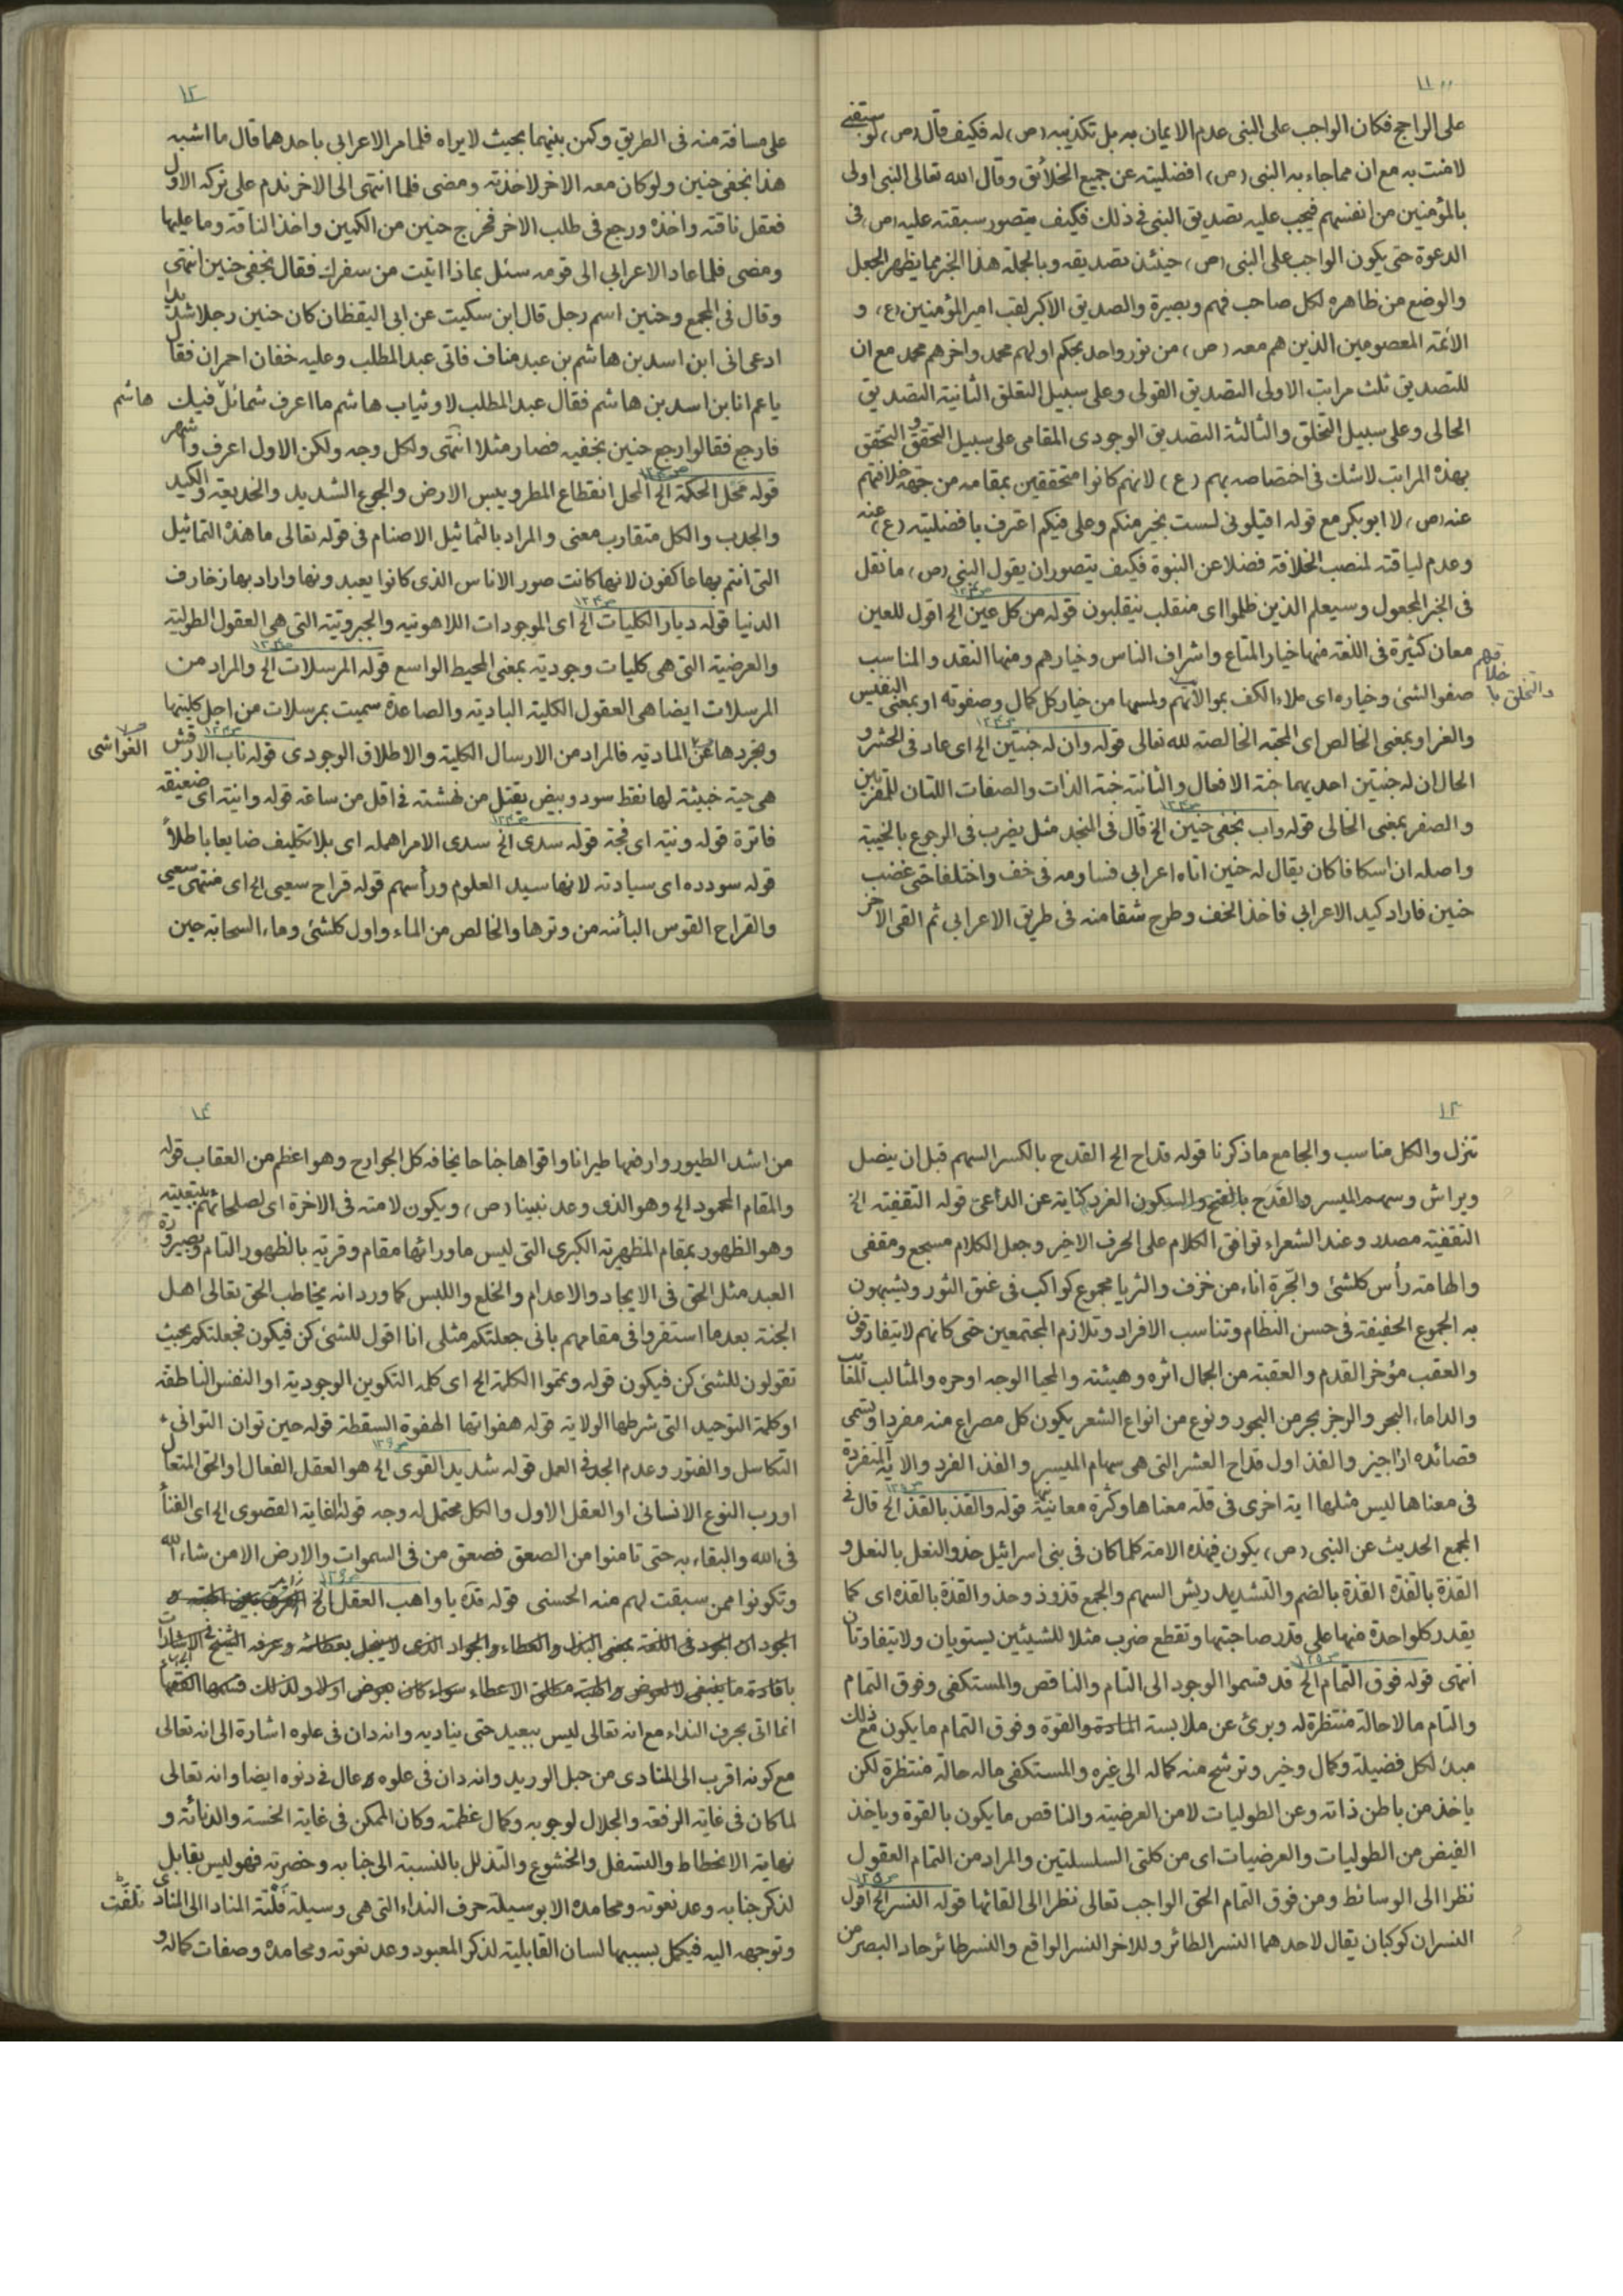 ١١
على الراجح فكان الواجب على النبى عدم الايمان به بل تكذيبه (ص) له فكيف قال (ص) لو سبقنى
لامنت به مع ان مما جاء به النبى (ص) افضليته عن جميع الخلائق وقال الله تعالى النبى اولى
بالمؤمنين من انفسهم فيجب عليه تصديق النبى فى ذلك فكيف يتصور سبقته عليه (ص) فى
الدعوة حتى يكون الواجب على النبى (ص) حينئذ تصديقه وبالجملة هذا الخبر مما يظهر الجعل
والوضع من ظاهره لكل صاحب فهم وبصيرة والصديق الاكبر لقب امير المؤمنين (ع) و
الائمة المعصومين الذين هم معه (ص) من نور واحد بحكم اولهم محمد واخرهم محمد مع ان
للتصديق ثلث مراتب الاولى التصديق القولى وعلى سبيل التعلق الثانية التصديق
الحالى وعلى سبيل التخلق والثالثة التصديق الوجودى المقامى على سبيل التحقق و التحقق
بهذه المراتب لاشك فى اختصاصه بهم (ع) لانهم كانوا متحققين بمقامه من جهة خلافتهم
عنه (ص) لا ابوبكر مع قوله اقيلونى لست بخير منكم وعلى فيكم اعترف بافضليته (ع) عنه
وعدم لياقته لمنصب الخلافة فضلا عن النبوة فكيف يتصور ان يقول النبى (ص) ما نقل
فى الخبر المجعول وسيعلم الذين ظلموا اى منقلب ينقلبون قوله من كل عين الخ اقول للعين
معان كثيرة فى اللغة منها خيار المتاع واشراف الناس وخيارهم ومنها النقد والمناسب
صفو الشئ وخياره اى ملاء الكف بموالاتهم ولمسها من خيار كل كمال وصفوته او بمعنى النفيس
والغر او بمعنى الخالص اى المحبة الخالصة لله تعالى قوله وان له جنتين الخ اى عاد فى الحشر و
الحال ان له جنتين احديهما جنة الافعال والثانية جنة الذات والصفات اللتان للمقربين
والصفر بمعنى الخالى قوله واب بخفى حنين الخ قال فى المنجد مثل يضرب فى الرجوع بالخيبة
واصله ان اسكافا كان يقال له حنين اتاه اعرابى فساومه فى خف واختلفا حتى غضب
حنين فاراد كيد الاعرابى فاخذ الخف وطرح شقا منه فى طريق الاعرابى ثم القى الاخر
١٢
على مسافة منه فى الطريق وكمن بينهما بحيث لا يراه فلما مر الاعرابى باحدهما قال ما اشبه
هذا بخفى حنين ولو كان معه الاخر لاخذته ومضى فلما انتهى الى الاخر ندم على تركه الاول
فعقل ناقته واخذه ورجع فى طلب الاخر فخرج حنين من الكمين واخذ الناقة وما عليها
ومضى فلما عاد الاعرابى الى قومه سئل بماذا اتيت من سفرك فقال بخفى حنين انتهى
وقال فى المجمع وحنين اسم رجل قال ابن سكيت عن ابى اليقظان كان حنين رجلا شديدا
ادعى انى ابن اسد بن هاشم بن عبد مناف فاتى عبد المطلب وعليه خفان احمران فقال
ياعم انا بن اسد بن هاشم فقال عبد المطلب لا وثياب هاشم ما اعرف شمائل فيك هاشم
فارجع فقالوا رجع حنين بخفيه فصار مثلا انتهى ولكل وجه ولكن الاول اعرف واشهر
قوله محل الحكمة الخ المحل انقطاع المطر ويبس الارض والجوع الشديد والخديعة والكيد
والجدب والكل متقارب معنى والمراد بالتماثيل الاصنام فى قوله تعالى ما هذه التماثيل
التى انتم بها عاكفون لانها كانت صور الاناس الذى كانوا يعبدونها واراد بها زخارف
الدنيا قوله ديار الكليات الخ اى الموجودات اللاهوتيه والجبروتية التى هى العقول الطولية
والعرضية التى هى كليات وجودية بمعنى المحيط الواسع قوله المرسلات الخ والمراد من
المرسلات ايضا هى العقول الكلية البادية والصاعدة سميت بمرسلات من اجل كليتها
وتجردها عن المادية فالمراد من الارسال الكلية والاطلاق الوجودى قوله ناب الارقش
الغواشى
هى حية خبيثة لها نقط سود وبيض يقتل من نهشته فى اقل من ساعة قوله وانية اى ضعيفة
فاترة قوله ونيته اى فجة قوله سدى الخ سدى الامر اهمله اى بلا تكليف ضايعا باطلاً
قوله سودده اى سيادته لانها سيد العلوم ورأسهم قوله قراح سعيى الخ اى منتهى سعيى
والقراح القوس البائنه من وترها والخالص من الماء واول كلشئ وماء السحابة حين
١٣
تنزل والكل مناسب والجامع ما ذكرنا قوله قداح الخ القدح بالكسر السهم قبل ان ينصل
ويراش وسهم الميسر والقدح بالفتح والسكون الفرد كناية عن الداعى قوله التقفية الخ
التقفية مصدر وعند الشعراء توافق الكلام على الحرف الاخير وجعل الكلام مسجع ومقفى
والهامة رأس كلشئ والجرة اناء من خزف والثريا مجموع كواكب فى عنق الثور ويشبهون
به الجموع الحفيفة فى حسن النظام وتناسب الافراد وتلازم المجتمعين حتى كانهم لايتفارقون
والعقب مؤخر القدم والعقبة من الجمال اثره وهيئته والمحيا الوجه اوحره والمثالب المعايب
والداماء البحر والرجز بحر من البحور ونوع من انواع الشعر يكون كل مصراع منه مفردا وتسمى
قصائده اراجيز والفذ اول قداح العشر التى هى سهام الميسر والفذ الفرد والاية المنفردة
فى معناها ليس مثلها اية اخرى فى قلة معناها وكثرة معانيها قوله والقذ بالقذ الخ قال فى
المجمع الحديث عن النبى (ص) يكون فى هذه الامة كلما كان فى بنى اسرائيل حذو النعل بالنعل و
القذة بالقذة القذة بالضم والتشديد ريش السهم والجمع قذوذ وحذو القذة بالقذه اى كما
يقدر كلواحدة منها على قدر صاحبتها وتقطع ضرب مثلا للشيئين يستويان ولا يتفاوتان
انتهى قوله فوق التمام الخ قد قسموا الوجود الى التام والناقص والمستكفى وفوق التمام
والتام ما لا حالة منتظرة له وبرئ عن ملابسة المادة والقوة وفوق التمام ما يكون مع ذلك
مبدء لكل فضيلة وكمال وخير وترشح منه كماله الى غيره والمستكفى ما له حالة منتظرة لكن
ياخذ من باطن ذاته وعن الطوليات لا من العرضية والناقص ما يكون بالقوة وياخذ
الفيض من الطوليات والعرضيات اى من كلتى السلسلتين والمراد من التمام العقول
نظرا الى الوسائط ومن فوق التمام الحق الواجب تعالى نظرا الى القائها قوله النسر الخ اقول
النسران كوكبان يقال لاحدهما النسر الطائر وللاخر النسر الواقع والنسر طائر حاد البصر من
١٤
من اشد الطيور وارفعها طيرانا واقواها جناحا يخافه كل الجوارح وهو اعظم من العقاب قوله
والمقام المحمود الخ وهو الذى وعد نبينا (ص) ويكون لامته فى الاخرة اى لصلحائهم بتبعيته
وهو الظهور بمقام المظهرية الكبرى التى ليس ما ورائها مقام وقربة بالظهور التام وصيرورة
العبد مثل الحق فى الايجاد والاعدام والخلع واللبس كما ورد انه يخاطب الحق تعالى اهل
الجنة بعد ما استقروا فى مقامهم بانى جعلتكم مثلى انا اقول للشئ كن فيكون فجعلتكم بحيث
تقولون للشئ كن فيكون قوله وتموا الكلمة الخ اى كلمه التكوين الوجودية او النفس الناطقة
او كلمة التوحيد التى شرطها الولاية قوله هفواتها الهفوة السقطة قوله حين توان التوانى
التكاسل والفتور وعدم الجد فى العمل قوله شديد القوى الخ هو العقل الفعال او الحق المتعال
او رب النوع الانسانى او العقل الاول والكل محتمل له وجه قوله الغاية القصوى الخ اى الفناء
فى الله والبقاء به حتى تامنوا من الصعق فصعق من فى السموات والارض الا من شاء الله
وتكونوا ممن سبقت لهم منه الحسنى قوله قده يا واهب العقل الخ
انما اتى بحرف النداء مع انه تعالى ليس ببعيد حتى يناديه وانه دان فى علوه اشارة الى انه تعالى
مع كونه اقرب الى المنادى من حبل الوريد وانه دان فى علوه وعال فى دنوه ايضا وانه تعالى
لما كان فى غاية الرفعة والجلال لوجوبه وكمال عظمته وكان الممكن فى غاية الخسة والدنائة و
نهاية الانحطاط والتسفل والخشوع والتذلل بالنسبة الى جنابه وحضرته فهو ليس بقابل
لذكر جنابه وعد نعوته ومحامده الا بوسيلة حرف النداء التى هى وسيلة المنادا الى المنادى
تلفت
وتوجهه اليه فيكمل بسببها لسان القابلية لذكر المعبود وعد نعوته ومحامده وصفات كماله و